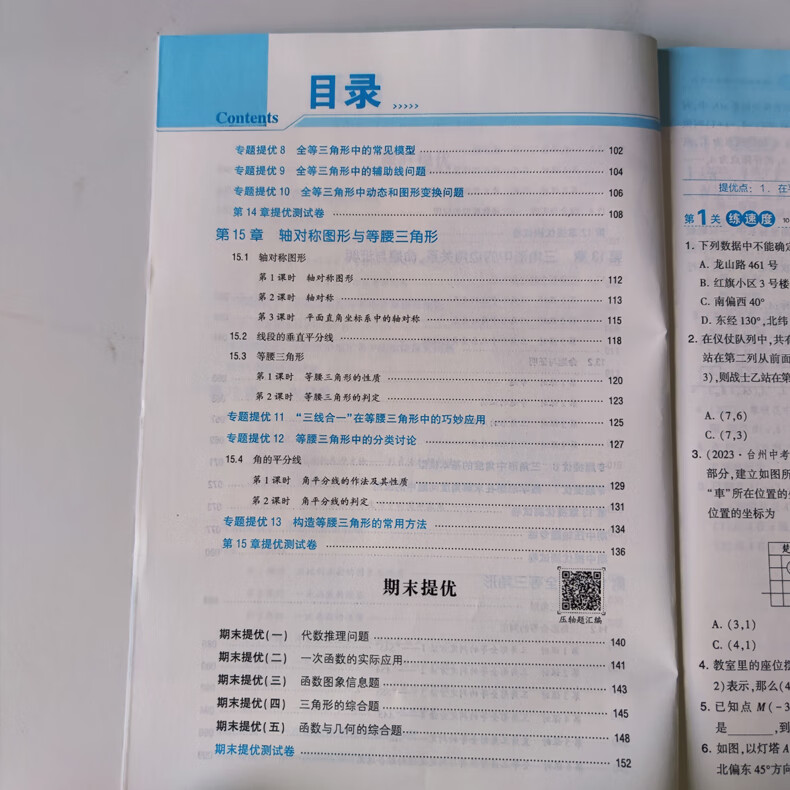 目录 >>>>>
Contents
专题提优8 全等三角形中的常见模型 102
专题提优9 全等三角形中的辅助线问题 104
专题提优10 全等三角形中动态和图形变换问题 106
第14章提优测试卷 108
第15章 轴对称图形与等腰三角形
15.1 轴对称图形
第1课时 轴对称图形 112
第2课时 轴对称 113
第3课时 平面直角坐标系中的轴对称 115
15.2 线段的垂直平分线 118
15.3 等腰三角形
第1课时 等腰三角形的性质 120
第2课时 等腰三角形的判定 123
专题提优11 “三线合一”在等腰三角形中的巧妙应用 125
专题提优12 等腰三角形中的分类讨论 127
15.4 角的平分线
第1课时 角平分线的作法及其性质 129
第2课时 角平分线的判定 131
专题提优13 构造等腰三角形的常用方法 134
第15章提优测试卷 136
期末提优
压轴题汇编
期末提优(一) 代数推理问题 140
期末提优(二) 一次函数的实际应用 141
期末提优(三) 函数图象信息题 143
期末提优(四) 三角形的综合题 145
期末提优(五) 函数与几何的综合题 148
期末提优测试卷 152
提优点：1. 在
第1关 练速度 10
1. 下列数据中不能确定
A. 龙山路461号
B. 红旗小区3号楼
C. 南偏西40°
D. 东经130°,北纬
2. 在仪仗队列中,共有
站在第二列从前面
3),则战士乙站在第
A. (7,6)
C. (7,3)
3. (2023·台州中考
部分,建立如图所
“車”所在位置的坐
位置的坐标为
A. (3,1)
C. (4,1)
4. 教室里的座位摆
2)表示,那么(4
5. 已知点M(-3
是 ,到
6. 如图,以灯塔A
北偏东45°方向